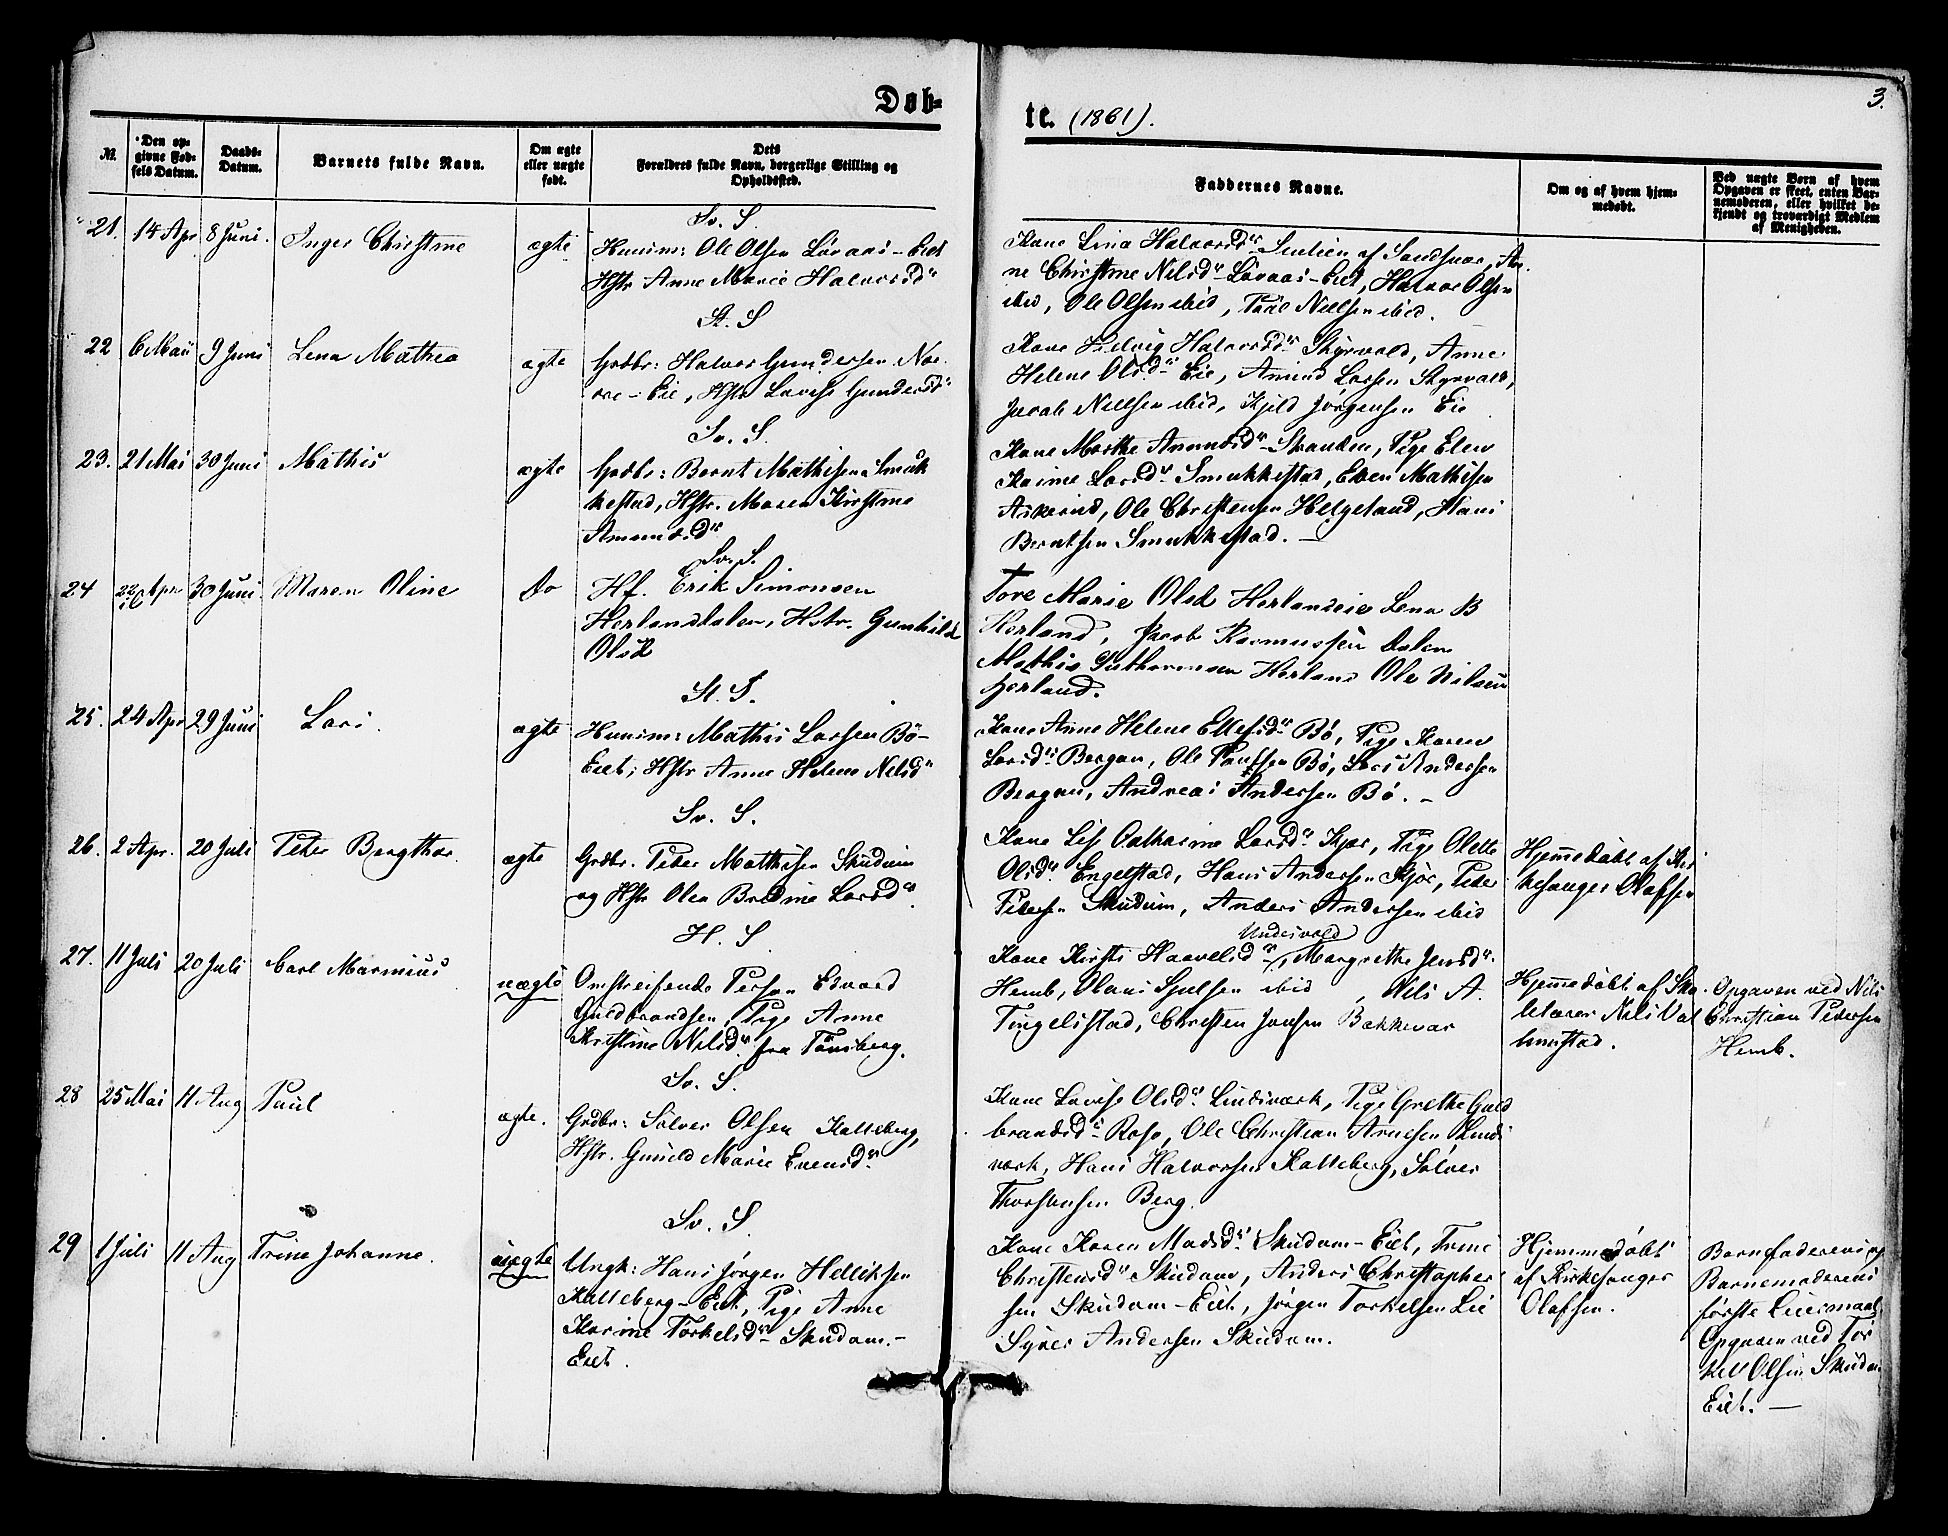 Døb=
te. (1861).
3.
№.
Den op-
givne Fød-
sels Datum.
Daabs-
Datum.
Barnets fulde Navn.
Om ægte
eller uægte
født.
Dets
Forældres fulde Navn, borgerlige Stilling og
Opholdssted.
Faddernes Navne.
Om og af hvem hjem-
medøbt.
Ved uægte Børn af hvem
Opgaven er skeet, enten Bar-
nemoderen, eller hvilket be-
kjendt og troværdigt Medlem
af Menigheden.
21. 14 Apr 8 Juni. Inger Christine ægte
Sv. S.
Huusm: Ole Olsen Løvaas-Eiet
Hstr Anne Marie Halvorsdr
Kone Lina Halvorsdr af Sandsvær, An-
ne Christine Nilsdr Løvaas-Eiet, Halvor Olsen
ibid, Ole Olsen ibid, Paul Nielsen ibid.
22 6 Mai 9 Juni Lena Mathea ægte
St. S
Grdbr: Halvor Gundersen
Eie, Hstr Lovise Gundersdr
Kone Helvig Halvorsdr Skjrvold, Anne
Helene Olsdr Eie, Amund Larsen Skyrvold,
Jacob Nielsen ibid, Kjeld Jørgensen Eie
23. 21 Mai 30 Juni Mathis ægte
Sv. S.
Grdbr: Bernt Mathisen Smuk
kestad, Hstr. Maren Kirstine
Amundsdr
Kone Marthe Amundsdr Skanden, Pige Elen
Karine Larsdr Smukkestad, Even Mathisen
Askerud, Ole Christensen Helgeland, Hans
Berntsen Smukkestad. —
24 22 Apr 30 Juni Maren Oline Do
Sv. S.
Hf. Erik Simonsen
Herlandsdalen, Hstr. Gunhild
Olsd
Tore Marie Olsd Herlandseie Lena B
Herland, Jacob Rasmussen Dalen
Mathis Guthormsen Herland Ole Nilsen
Herland.
25. 24 Apr 29 Juni Lars. ægte
St. S.
Huusm: Mathis Larsen Bø-
Eiet, Hstr Anne Helene Nilsdr
Kone Anne Helene Ellefsdr Bø, Pige Karen
Larsdr Bergan, Ole Paulsen Bø, Lars Andersen
Bergan, Andreas Andersen Bø. —
26. 2 Apr. 20 Juli Peter Bergthor. ægte
Sv. S.
Grdbr. Peter Mathisen Skudum
og Hstr Olea Bredine Larsdr
Kone Lise Cathrine Larsdr Kjør, Pige Olette
Olsdr Engelstad, Hans Andersen Kjør, Peder
Pedersen Skudum, Anders Andersen ibid
Hjemmedøbt af Kir
kesanger Olafsen
27. 11 Juli 20 Juli Carl Marinius uægte
H. S.
Omstreifende Person Edvard
Guldbrandsen, Pige Anne
Kristine Nilsdr fra Tønsberg.
Undersvold
Kone Kirsti Haavelsdr, Margrethe Jensdr
Hemb, Olaus Sjulsen ibid, Nils A.
Tingelstad, Christen Jansen Bakkevar
Hjemmedøbt af Sko-
lelærer Nils Val
bunstad.
Opgaven ved Nils
Christian Pedersen
Hemb.
28 25 Mai 11 Aug Paul ægte.
Sv. S.
Grdbr: Sølver Olsen Kalleberg,
Hstr. Gunild Marie Evensdr
Kone Lovise Olsdr Lindsværk, Pige Grethe Guld
brandsdr Rosa, Ole Christian Arnesen Linds
værk, Hans Halvorsen Kalleberg, Sølver
Thorstensen Berg.
29 1 Juli 11 Aug Trine Johanne. uægte
Sv. S.
Ungk: Hans Jørgen Helliksen
Kalleberg-Eiet, Pige Anne
Karine Torkelsdr Skudum-
Eiet.
Kone Karen Madsdr Skudum-Eiet, Trine
Christensdr Skudum, Anders Christopher
sen Skudum-Eiet, Jørgen Torkelsen Lie
Syver Andersen Skudum.
Hjemmedøbt
af Kirkesanger
Olafsen.
Barnefaderens og
Barnemoderens
første Leiermaal,
Opgaven ved Tor
kel Olsen Skudum
Eiet. —